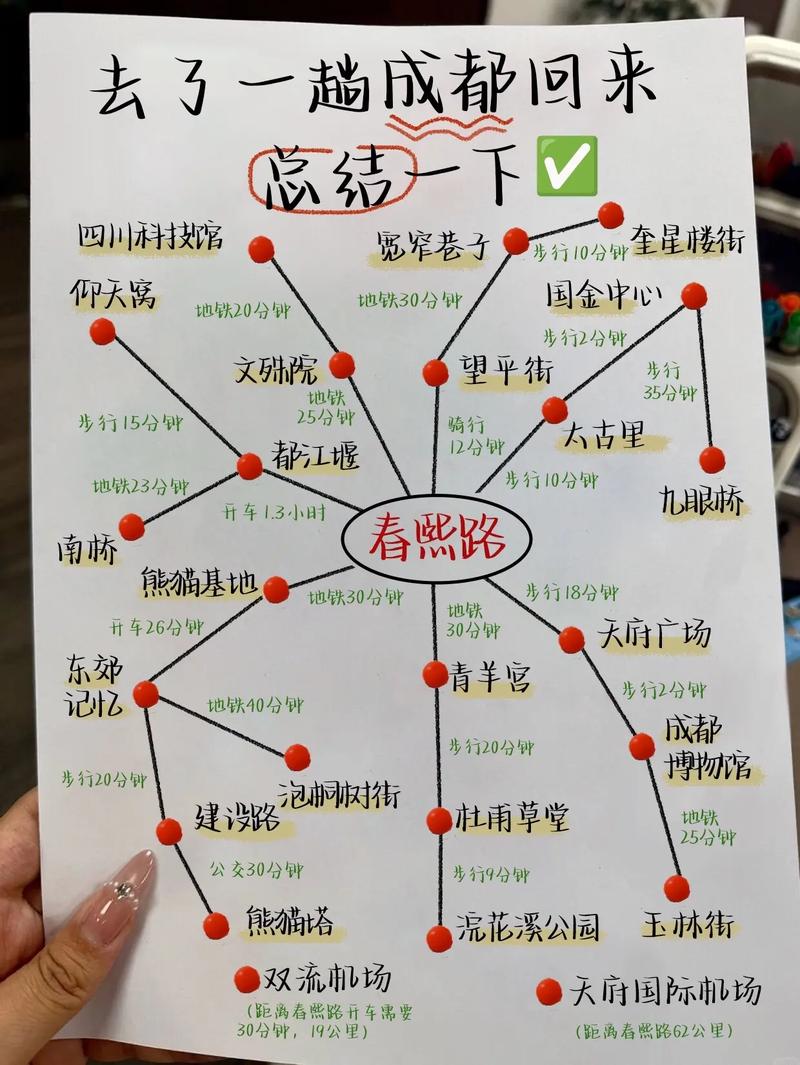 去了一趟成都回来
总结一下
四川科技馆
宽窄巷子
步行10分钟
奎星楼街
仰天窝
地铁20分钟
地铁30分钟
国金中心
步行2分钟
文殊院
望平街
步行
35分钟
地铁
25分钟
步行15分钟
骑行
12分钟
太古里
都江堰
地铁23分钟
步行10分钟
九眼桥
开车1.3小时
南桥
春熙路
熊猫基地
地铁30分钟
步行18分钟
开车26分钟
地铁
30分钟
天府广场
东郊
记忆
青羊宫
步行2分钟
地铁40分钟
成都
博物馆
步行20分钟
步行20分钟
泡桐树街
建设路
杜甫草堂
地铁
25分钟
公交30分钟
步行9分钟
熊猫塔
浣花溪公园
玉林街
双流机场
(距离春熙路开车需要
30分钟，19公里)
天府国际机场
(距离春熙路62公里)